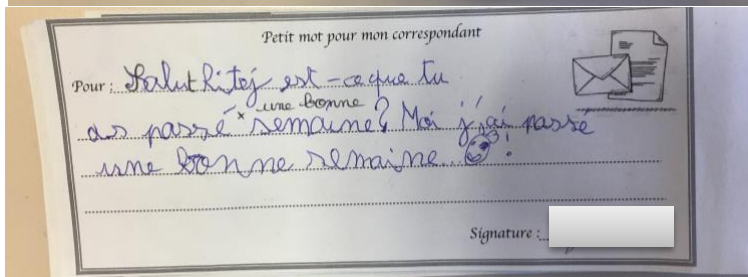 Petit mot pour mon correspondant
Pour : Salut Ritej est-ce que tu
as passé une bonne semaine? Moi j'ai passé
une bonne semaine !
Signature :